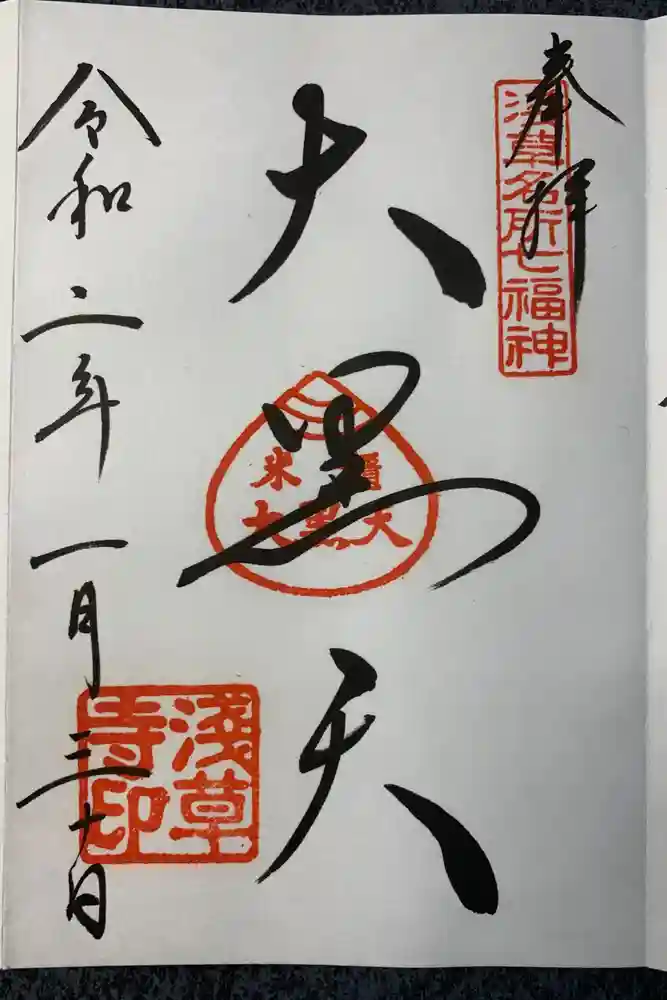 奉拝
浅草名所七福神
大黒天
米櫃
大黒天
令和二年一月三十日
淺草
寺印